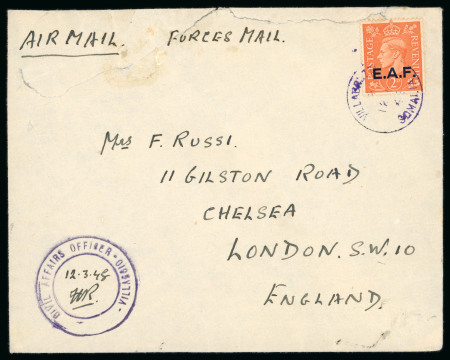 AIR MAIL. FORCES MAIL.
POSTAGE REVENUE
E.A.F.
Mrs F. RUSSI.
11 GILSTON ROAD
CHELSEA
LONDON. S.W. 10
ENGLAND.
CIVIL AFFAIRS OFFICER - VILLABRUZZI
12-3-48